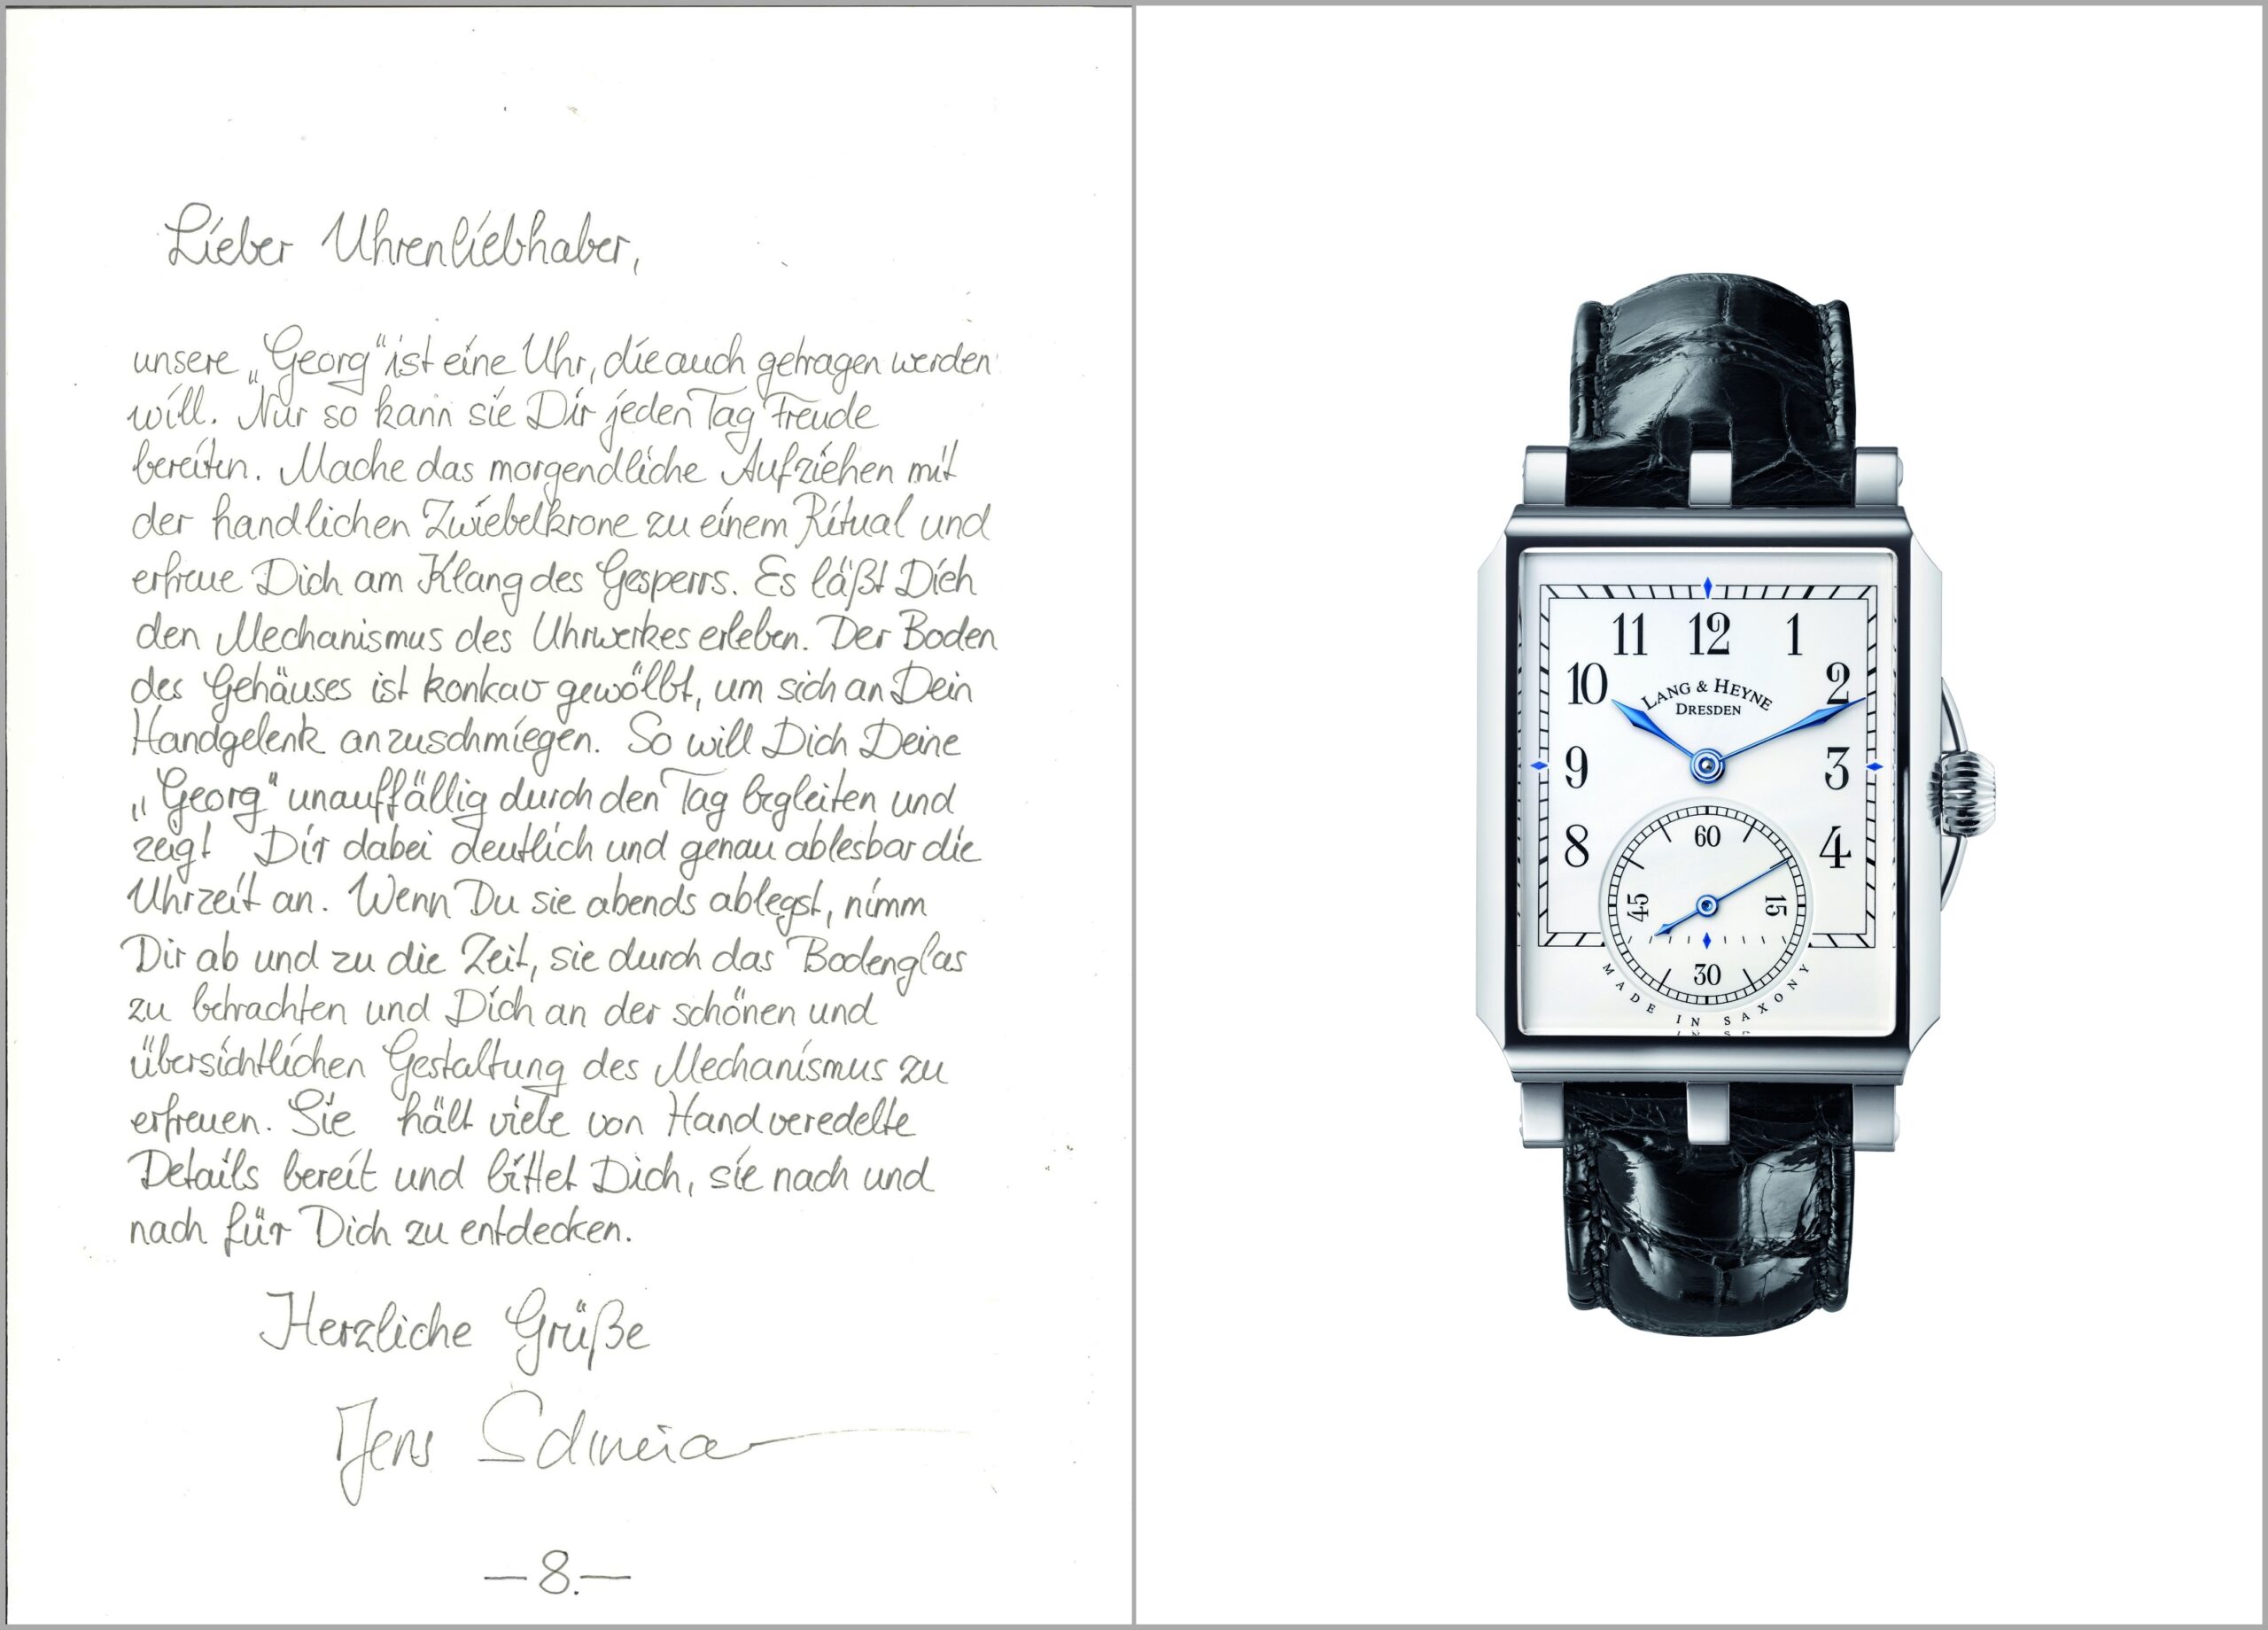 Lieber Uhrenliebhaber,
unsere „Georg“ ist eine Uhr, die auch getragen werden
will. Nur so kann sie Dir jeden Tag Freude
bereiten. Mache das morgendliche Aufziehen mit
der handlichen Zwiebelkrone zu einem Ritual und
erfreue Dich am Klang des Gesperrs. Es läßt Dich
den Mechanismus des Uhrwerkes erleben. Der Boden
des Gehäuses ist konkav gewölbt, um sich an Dein
Handgelenk anzuschmiegen. So will Dich Deine
„Georg“ unauffällig durch den Tag begleiten und
zeigt Dir dabei deutlich und genau ablesbar die
Uhrzeit an. Wenn Du sie abends ablegst, nimm
Dir ab und zu die Zeit, sie durch das Bodenglas
zu betrachten und Dich an der schönen und
übersichtlichen Gestaltung des Mechanismus zu
erfreuen. Sie hält viele von Hand veredelte
Details bereit und bittet Dich, sie nach und
nach für Dich zu entdecken.
Herzliche Grüße
Jens
—8.—
11 12 1
10 2
LANG & HEYNE
DRESDEN
9 3
8 4
60
45 15
30
MADE IN SAXONY